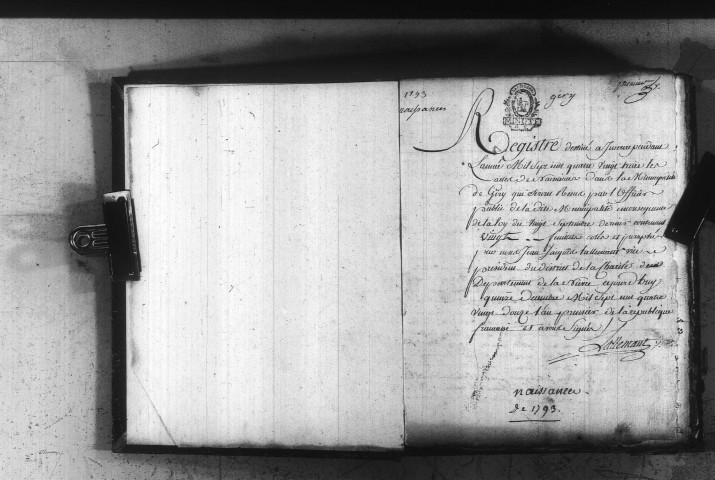 1793
naissances
Giry
premier
Registre destiné a Inscrire pendant
L'année Mil Sept cent quatre vingt treize les
actes de naissances dans la Municipalité
de Giry qui seront Rendus par l'Officier
public de la dite Municipalité en consequence
de la loy du vingt Septembre dernier contenant
vingt feuillets cotés et paraphés
par nous Jean Jacques Lallemant vice
president du district de la Charité
Departement de la Nievre cejourd'huy
quinze Decembre Mil Sept cent quatre
vingt douze l'an premier de la republique
francaise et avons Signés
Lallemant
naissances
de 1793.